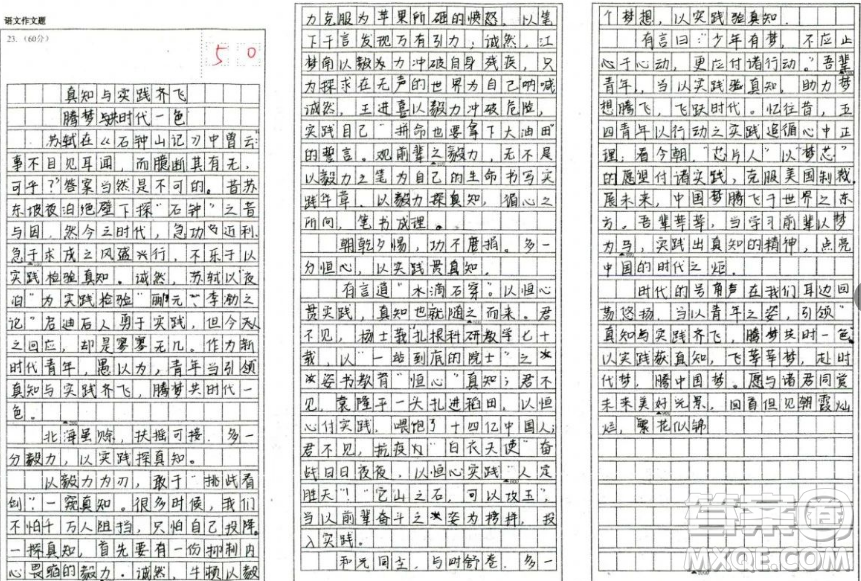 语文作文题
23.（60分）
50
真知与实践齐飞
腾梦共时代一色
苏轼在《石钟山记》中曾云：“
事不目见耳闻，而臆断其有无，
可乎？”答案当然是不可的。昔苏
东坡夜泊绝壁下探“石钟”之音
与因，然今之时代，急功近利、
急于求成之风盛兴行，不乐于以
实践检验真知。诚然，苏轼以“夜
泊”为实践检验“郦元”“李勃之
记”启迪后人勇于实践，但今天人
之回应，却是寥寥无几。作为新
时代青年，愚以为，青年当引领
真知与实践齐飞，腾梦共时代一
色。
北海虽赊，扶摇可接，多一
分毅力，以实践探真知。
以毅力为刃，敢于“挑战看
剑”，一窥真知。很多时候，我们
不怕千万人阻挡，只怕自己投降。
一探真知，首先要有一份抑制内
心畏焰的毅力。诚然，牛顿以毅
力克服为苹果所砸的愤怒，以笔
下千言发现万有引力；诚然，江
梦南以毅力冲破自身残疾，只
为探求在无声的世界为自己呐喊
诚然，王进喜以毅力冲破危险，
实践自己“拼命也要拿下大油田”
的誓言。观前辈之毅力，无不是
以毅力之笔为自己的生命书写实
践华章。以毅力探真知，循心之
所问，笔书成理。
朝乾夕惕，功不唐捐。多一
分恒心，以实践贯真知。
有言道“水滴石穿”。以恒心
贯实践，真知也就随之而来。君
不见，杨士莪扎根科研教学七十
载，以“一站到底的院士”之
姿书教育“恒心”真知；君不
见，袁隆平一头扎进稻田，以恒
心付实践，喂饱了十四亿中国人；
君不见，抗疫内“白衣天使”奋
战日日夜夜，以恒心实践“人定
胜天”！“它山之石，可以攻玉”，
当以前辈奋斗之姿为榜样，投
入实践。
和光同尘，与时舒卷，多一
个梦想，以实践验真知。
有言曰：“少年有梦，不应止
心于心动，更应付诸行动。”吾辈
青年，当以实践验真知，助力梦
想腾飞，飞跃时代。忆往昔，五
四青年以行动之实践追偏心中正
理；看今朝，“芯片人”以“梦芯”
的愿望付诸实践，克服美国制裁。
展未来，中国梦腾飞于世界之东
方。吾辈莘莘，当学习前辈以梦
为马，实践出真知的精神，点亮
中国的时代之炬。
时代的号角声在我们耳边回
荡悠扬，当以青年之姿，引领“
真知与实践齐飞，腾梦共时代一色”
以实践检真知，飞莘莘梦，赴时
代梦，腾中国梦。愿与诸君同赏
未来美好光景，回首但见朝霞灿
烂，繁花似锦
答案圈
MXQE.COM